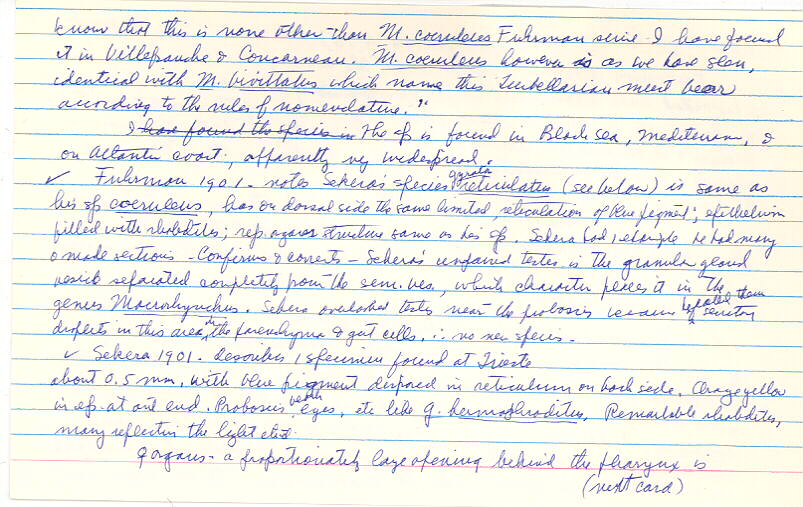 know that this is none other than M. coeruleus Fuhrman since I have found
it in Villefranche & Concarneau. M. coeruleus however is as we have seen,
identical with M. bivittatus which name this Turbellarian must bear
according to the rules of nomenclature."
I had found the species in The sp is found in Black sea, Mediterran, &
on Atlantic coast., apparently very widespread.
✓ Fuhrman 1901 - notes Sekera's species gyrata reticulatus (see below) is same as
his sp coeruleus, has on dorsal side the same limited, reticulation of blue pigment; epithelium
filled with rhabdites; rep. organs structure same as his sp. Sekera had 1 example he had many
& made sections - Confirms & corrects - Sekera's unpaired testes is the granular gland
vesicle separated completely from the sem. ves., which character places it in the
genus Macrorhynchus. Sekera overlooked testes near the proboscis because of secretory
droplets in this area, in the parenchyma & gut cells, ∴ no new species.
✓ Sekera 1901 - describes 1 specimen found at Trieste
about 0.5 mm, with blue pigment disposed in reticulum on back side. Orange yellow
in ep. at ant end. Proboscis, eyes, etc like G. hermaphroditus, Remarkable rhabdites,
many reflecting the light
♀ organs - a proportionately large opening behind the pharynx is
(next card)